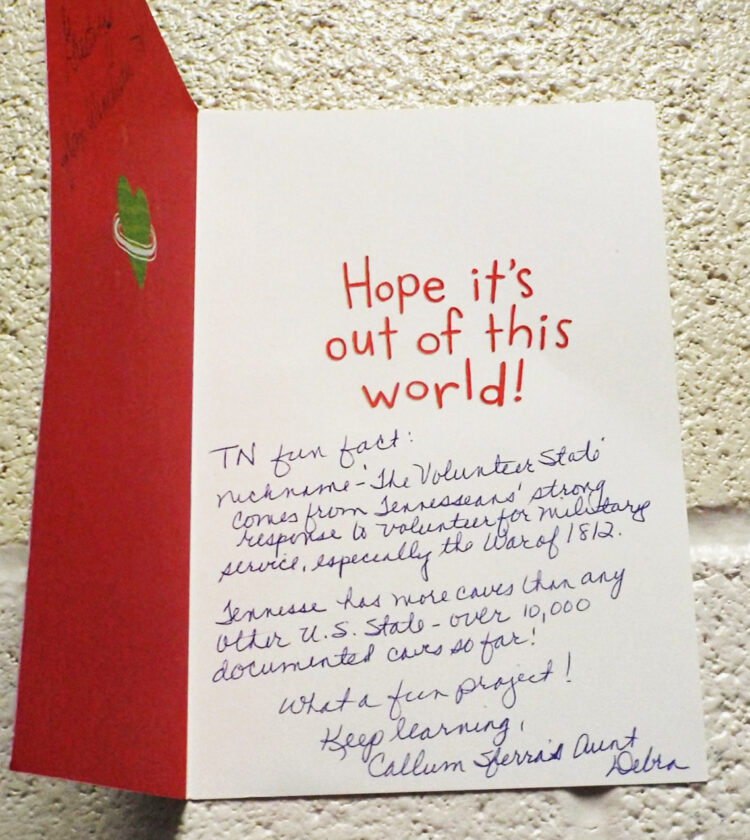 Hope it's
out of this
world!
TN fun fact:
nickname - 'The Volunteer State'
comes from Tennesseans' strong
response to volunteer for military
service, especially the War of 1812.
Tennesse has more caves than any
other U.S. State - over 10,000
documented caves so far!
What a fun project!
Keep learning,
Callum Sferra's Aunt
Debra